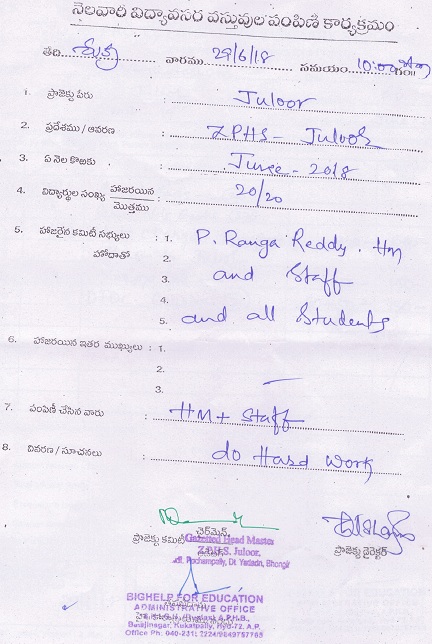 నెలవారి విద్యావసర వస్తువుల పంపిణి కార్యక్రమం
తేది శుక్ర వారము 29/6/18 సమయం 10:00 గం॥
1. ప్రాజెక్టు పేరు : Juloor
2. ప్రదేశము / ఆవరణ : ZPHS - Juloor
3. ఏ నెల కొఱకు : June - 2018
4. విద్యార్థుల సంఖ్య హాజరయిన / మొత్తము : 20/20
5. హాజరైన కమిటీ సభ్యులు : 1. P. Ranga Reddy. HM
హోదాతో 2.
3. and Staff
4.
5. and all Students
6. హాజరయిన ఇతర ముఖ్యులు : 1.
2.
3. —
7. పంపిణీ చేసిన వారు : HM + Staff
8. వివరణ / సూచనలు : do Hard Work
ఛైర్మెన్
ప్రాజెక్టు కమిటీ
Gazetted Head Master
Z.P.H.S. Juloor,
Pochampally, Dt. Yadadri, Bhongir
ప్రాజెక్టు డైరెక్టర్
BIGHELP FOR EDUCATION
ADMINISTRATIVE OFFICE
A.P.H.B.,
Balajinagar, Kukatpally, Hyd-72, A.P.
Office Ph: 040-2311 2224/9849757765